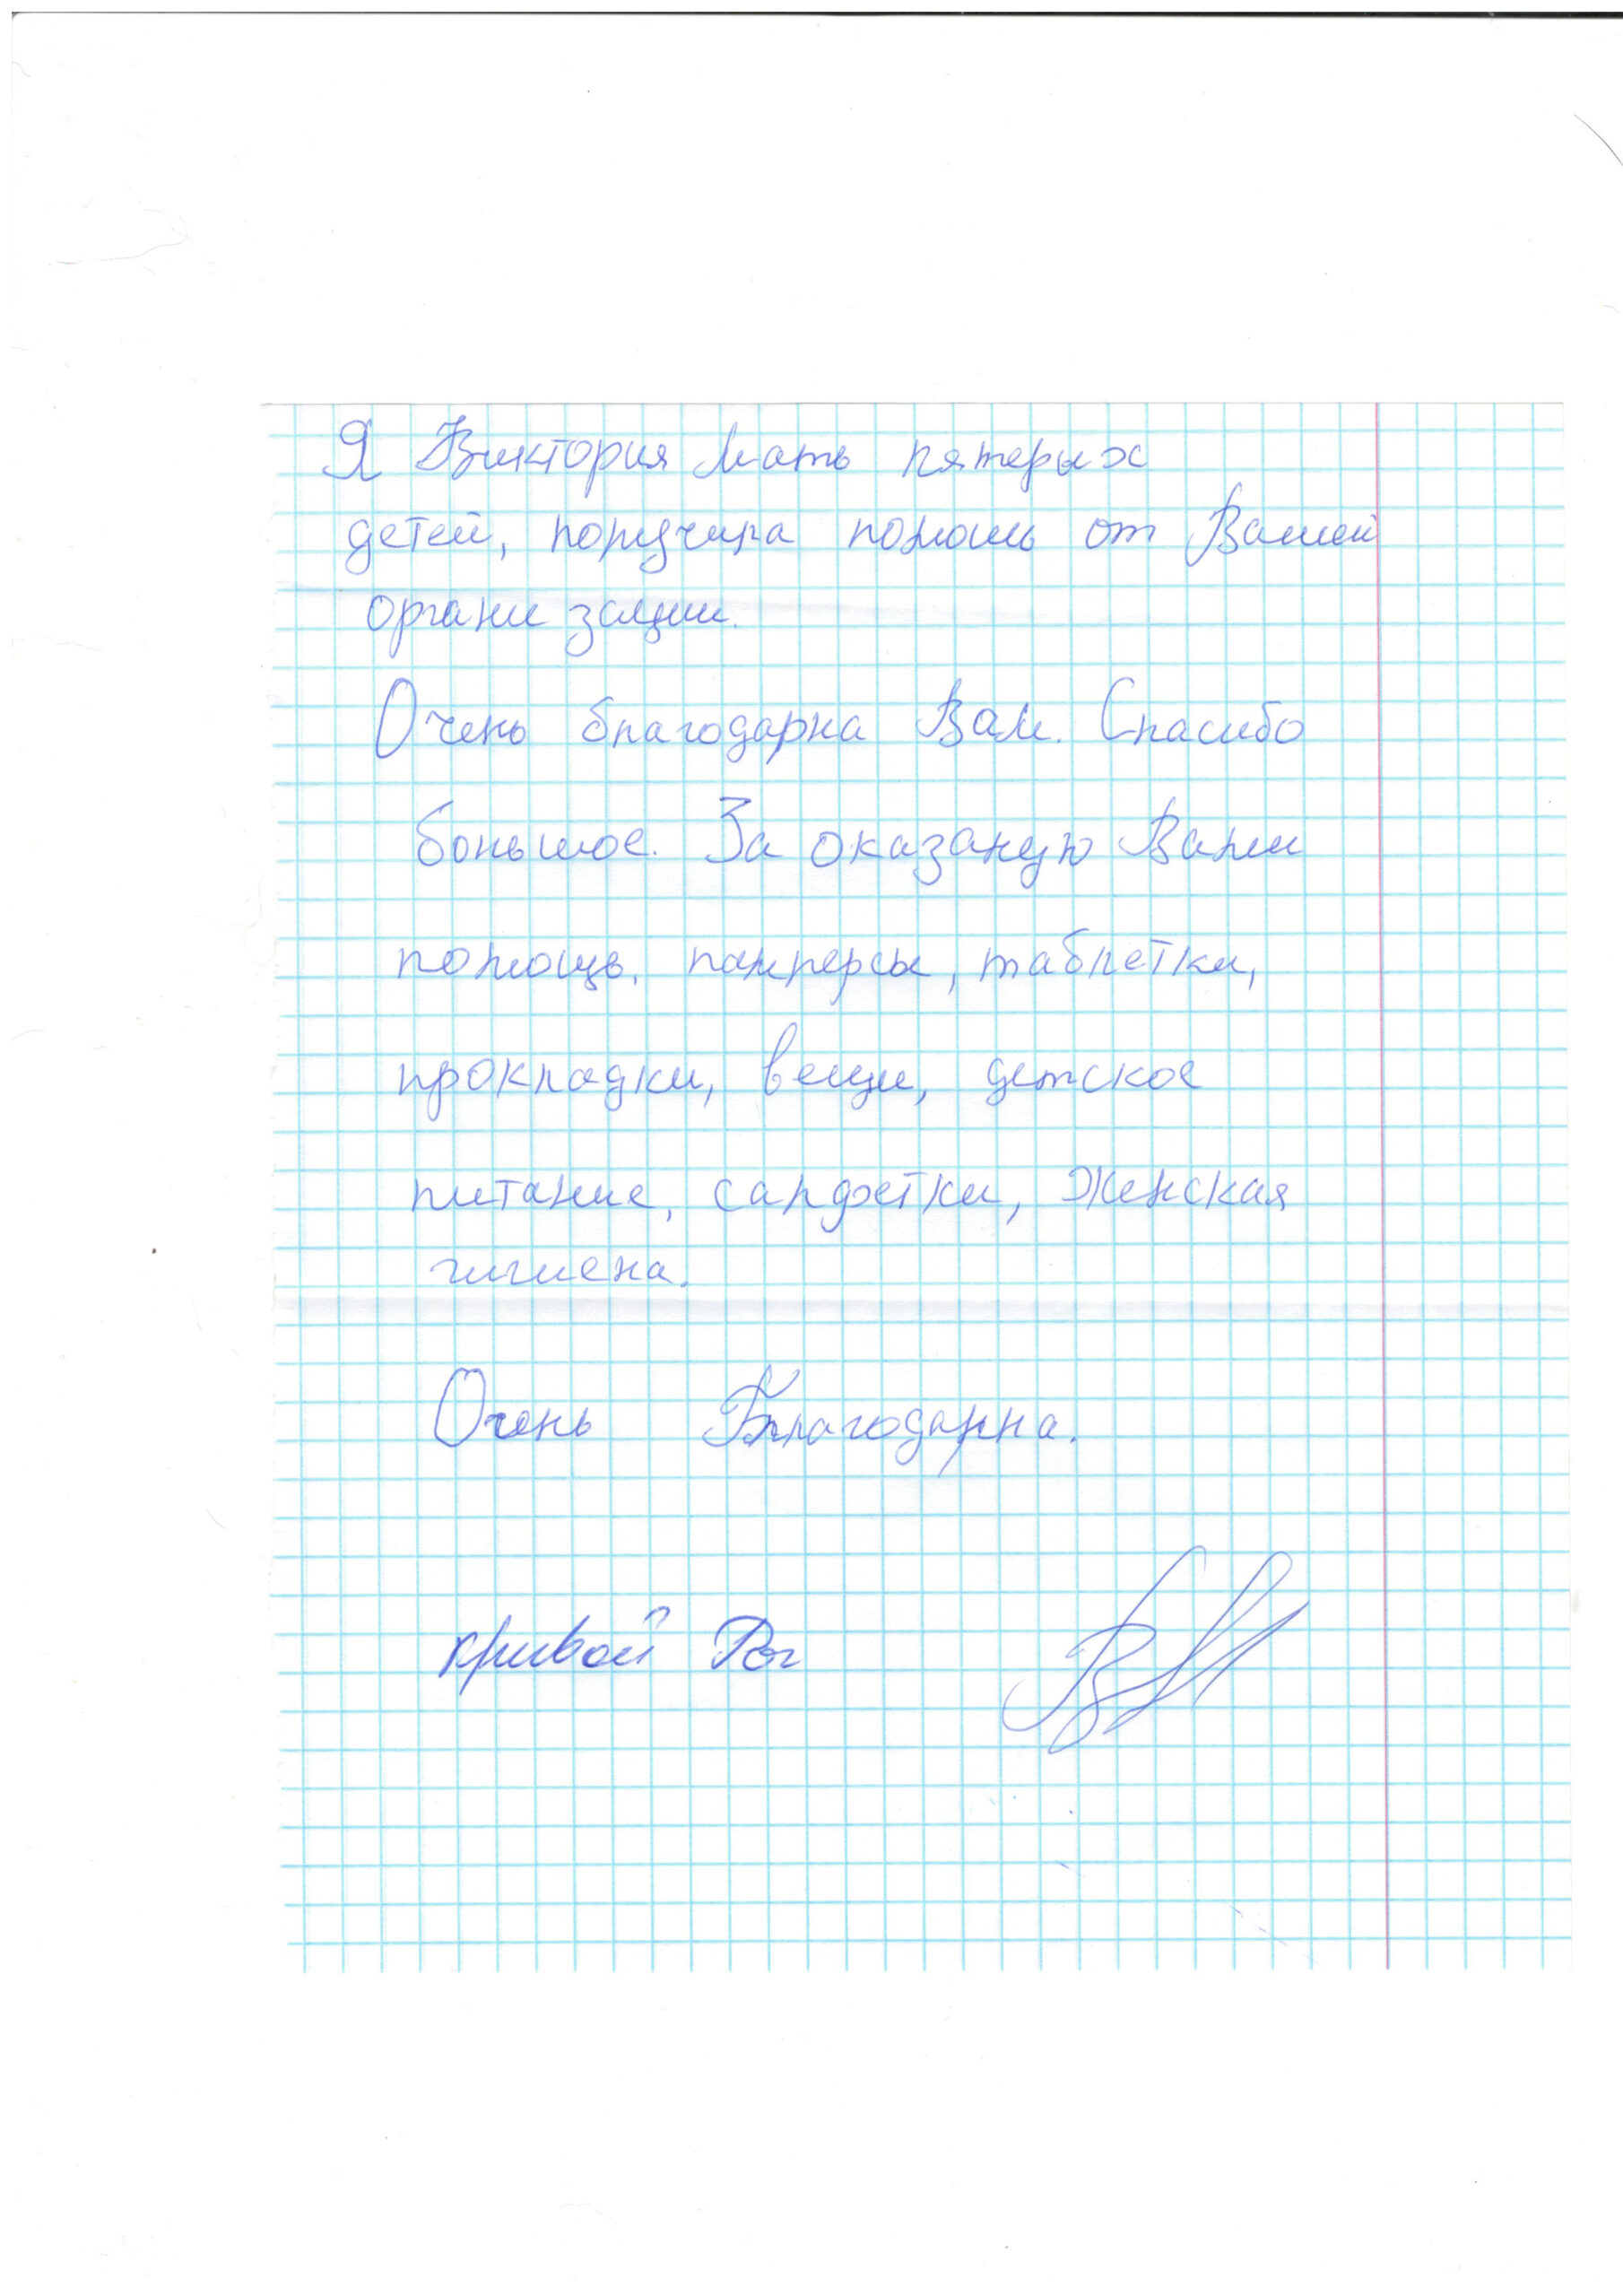 Я Виктория Мать пятерых
детей, получила помошь от Вашей
организации.
Очень благодарна Вам. Спасибо
большое. За оказаную Вами
помощь, памперсы, таблетки,
прокладки, вещи, детское
питание, салфетки, Женская
гигиена.
Очень Благодарна.
кривой Рог